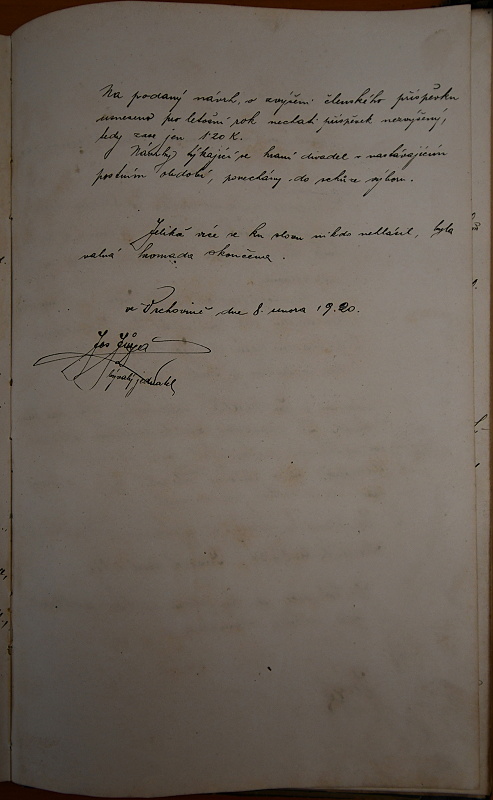 Na podaný návrh, o zvýšení členského příspěvku
usneseno pro letošní rok nechati příspěvek nezvýšený,
tedy zase jen 1·20 K.
Návrhy týkající se hraní divadel v nastávajícím
postním období, ponechány do schůze výboru.
Jelikož více se ku slovu nikdo nehlásil, byla
valná hromada skončena.
ve Vrchovině dne 8. února 1920.
Jos
bývalý jednatel